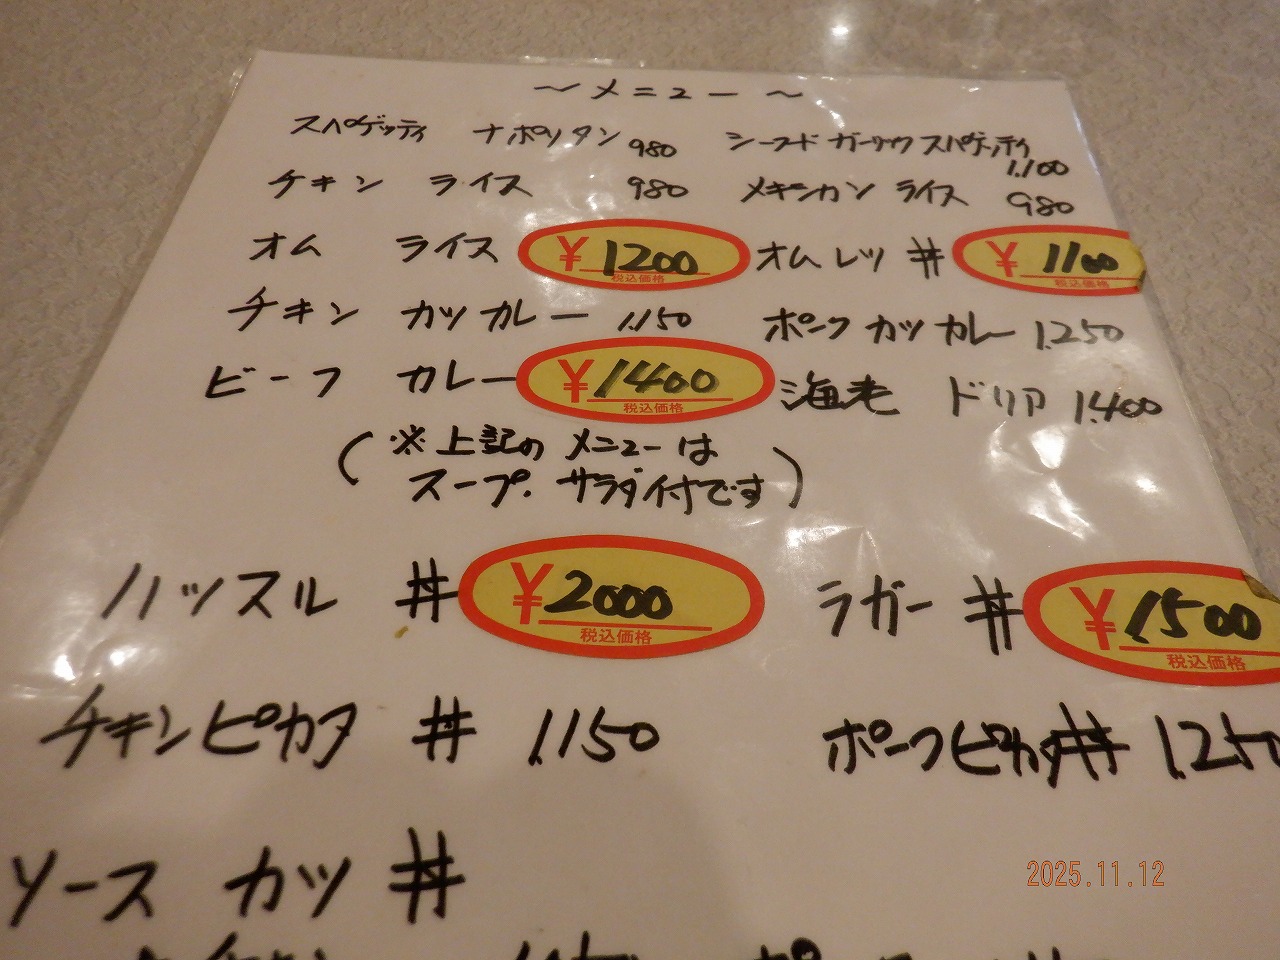 〜メニュー〜
スパゲッティ ナポリタン 980 シーフード ガーリック スパゲッティ 1.100
チキン ライス 980 メキシカン ライス 980
オム ライス ¥1200 税込価格 オムレツ 丼 ¥1100 税込価格
チキン カツ カレー 1.150 ポーク カツ カレー 1.250
ビーフ カレー ¥1400 税込価格 海老 ドリア 1.400
(※上記の メニューは
スープ. サラダ付です)
ハッスル 丼 ¥2000 税込価格 ラガー 丼 ¥1500 税込価格
チキンピカタ 丼 1.150 ポークピカタ丼 1.250
ソース カツ 丼
2025.11.12